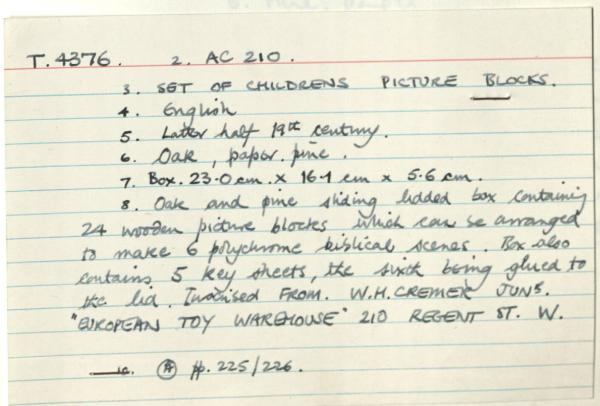 T. 4376. 2. AC 210.
3. SET OF CHILDRENS PICTURE BLOCKS.
4. English
5. Latter half 19th century.
6. Oak, paper. pine.
7. Box. 23.0 cm. x 16.1 cm x 5.6 cm.
8. Oak and pine sliding lidded box containing
24 wooden picture blocks which can be arranged
to make 6 polychrome biblical scenes. Box also
contains 5 key sheets, the sixth being glued to
the lid. FROM. W.H. CREMER JUNR.
"EUROPEAN TOY WAREHOUSE" 210 REGENT ST. W.
Ⓐ pp. 225/226.